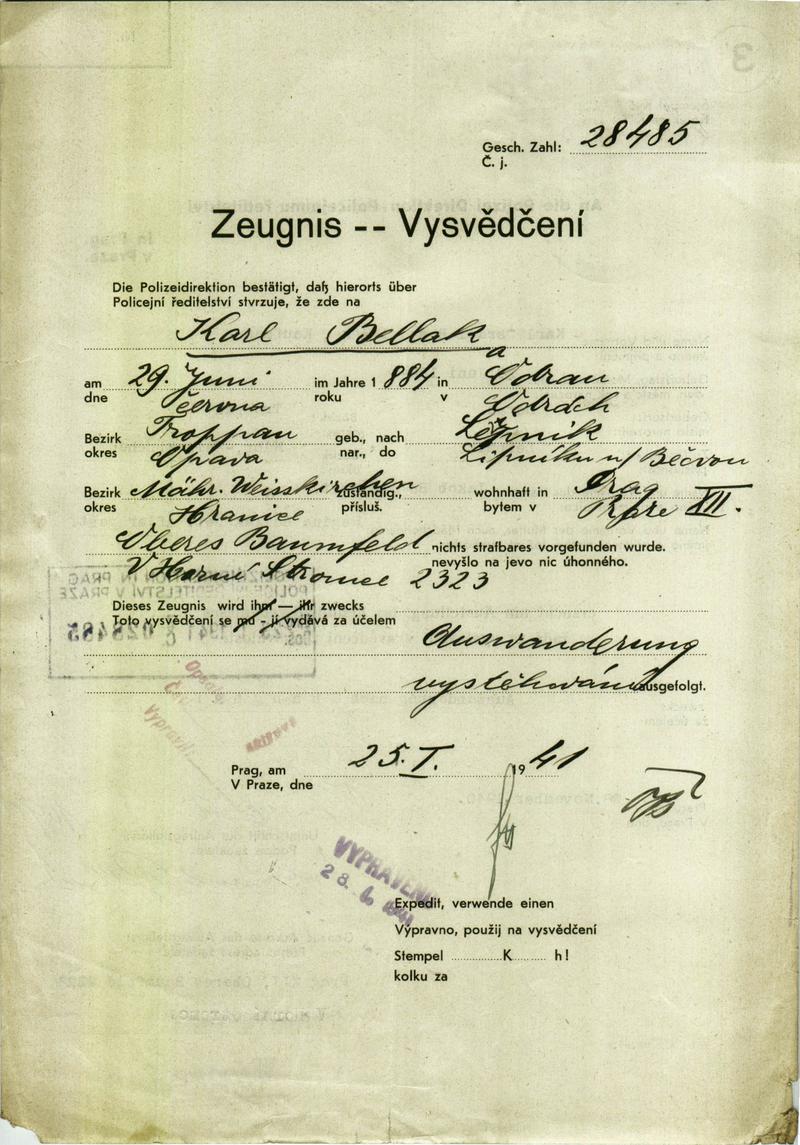 Gesch. Zahl: 28485
Č. j.
Zeugnis -- Vysvědčení
Die Polizeidirektion bestätigt, daß hierorts über
Policejní ředitelství stvrzuje, že zde na
Karl Bellak
a
am 29. Juni im Jahre 1 884 in Odrau
dne června roku v Odrách
Bezirk Troppau geb., nach Leipnik
okres Opava nar., do Lipníku n/ Bečvou
Bezirk Mähr. Weisskirchen zuständig., wohnhaft in Prag
okres Hranice přísluš. bytem v Praze XII.
Oberes Baumfeld nichts strafbares vorgefunden wurde.
nevyšlo na jevo nic úhonného.
V Horní Stromce 2323
Dieses Zeugnis wird ihm — ihr zwecks
Toto vysvědčení se mu - jí vydává za účelem
Auswanderung
vystěhování ausgefolgt.
Prag, am 25. I. 19 41
V Praze, dne
VYPRAVENO
28.
Expedit, verwende einen
Výpravno, použij na vysvědčení
Stempel K h!
kolku za